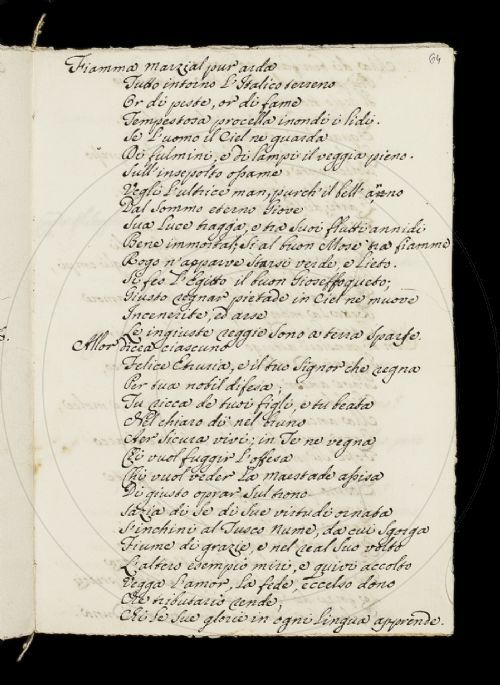 64
Fiamma marzial pur arda
Tutto intorno L'Italico terreno
Or di peste, or di fame
Tempestosa procella inondi i lidi.
Se L'uomo il Ciel ne guarda
Di fulmini, e di lampi il veggia pieno.
Sull'insepolto ossame
Vegli L'ultrice man, purch'il bell'anno
Dal Sommo eterno Giove
Sua Luce tragga, e tra Suoi flutti annidi
Bene immortal; Sì al buon Mosè tra fiamme
Rogo n'apparve Starsi verde, e Lieto.
Si feo L'Egitto il buon Gioseffo queto;
Giusto regnar pietade in Ciel ne muove
Incenerite, ed arse
Le ingiuste reggie Sono a terra Sparse.
Allor dicea ciascuno
Felice Etruria, e il tuo Signor che regna
Per tua nobil difesa;
Tu ricca de tuoi figli, e tu beata
Nel chiaro dì nel bruno
Aer Sicura vivi; in Te ne vegna
Chi vuol fuggir L'offesa
Chi vuol veder La maestade assisa
Di giusto oprar Sul trono
Sazia di Se di Sue virtudi ornata
S'inchini al Tusco Nume, da cui Sgorga
Fiume di grazie, e nel real Suo volto
L'altero esempio miri, e quivi accolto
Vegga L'amor, La fede, Eccelso dono
Che tributario rende,
Chi Le Sue glorie in ogni Lingua apprende.